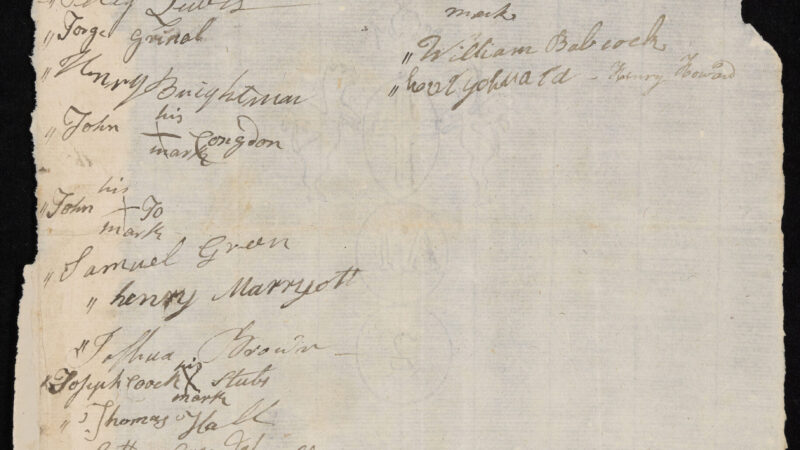 " Jorge Grinal
" Henry Brightman
" John his + mark Congdon
" John his + mark To
" Samuel Green
" henry Marryott
" Joshua Brown
" Joseph Coock his X mark Stubs
" Thomas Hall
mark
" William Babcock
" - Henry Howard